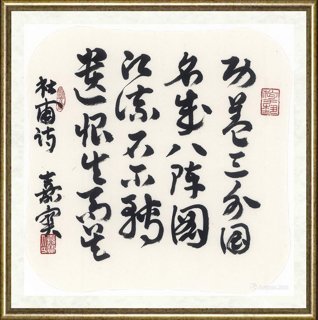 功盖三分国
名成八阵圖
江流石不轉
遺恨失吞吴
杜甫诗 嘉